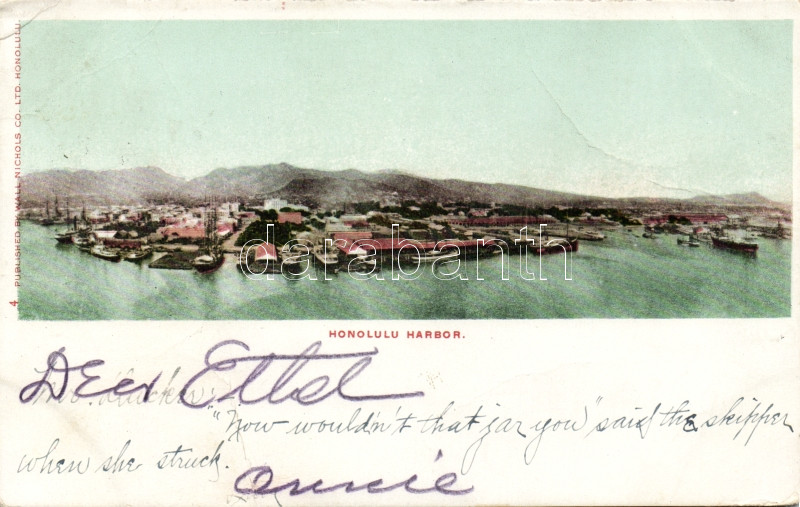 4 PUBLISHED BY WALL, NICHOLS CO. LTD. HONOLULU.
darabanth
HONOLULU HARBOR.
Dear Ethel
"Now wouldn't that jar you" said the skipper
when she struck.
Annie